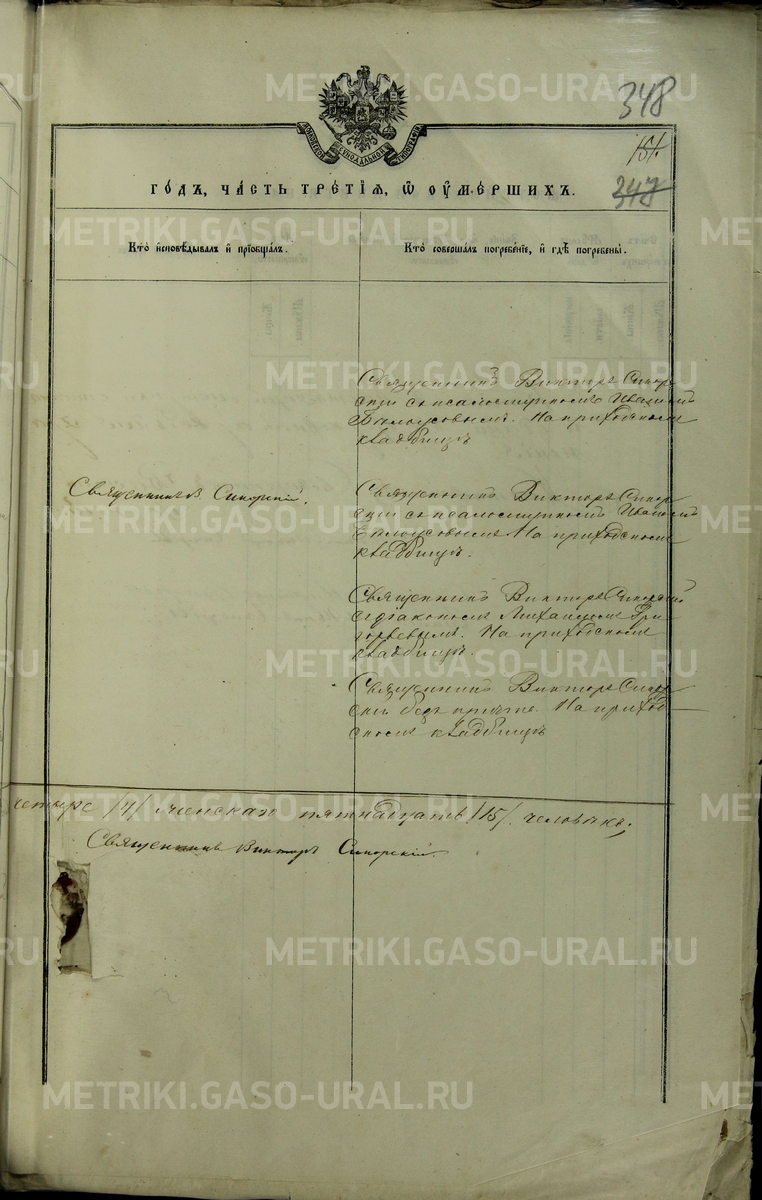 348
151.
347
МОСКОВСКОЙ СѴНОДАЛЬНОЙ ТИПОГРАФІИ
го́дъ, ча́сть тре́тїѧ, ѡ҆ оу҆ме́ршихъ.
Кто̀ и҆сповѣ́дывалъ и҆ прїобща́лъ.
Кто̀ соверша́лъ погребе́нїе, и҆ гдѣ̀ погребены̀.
Священникъ Викторъ Сикор
скій съ псаломщикомъ Иваномъ
На приходскомъ
кладбищѣ
Священникъ Сикорскій.
Священникъ Викторъ Сикор
скій съ псаломщикомъ Иваномъ
На приходскомъ
кладбищѣ.
Священникъ Викторъ Сикорскій
съ діакономъ Михаиломъ Гри
горьевымъ. На приходскомъ
кладбищѣ.
Священникъ Викторъ Сикор
скій безъ причта. На приход
скомъ кладбищѣ
четыре /4/ женскаго пятнадцать /15/ человѣкъ;
Священникъ Викторъ Сикорскій.
METRIKI.GASO-URAL.RU